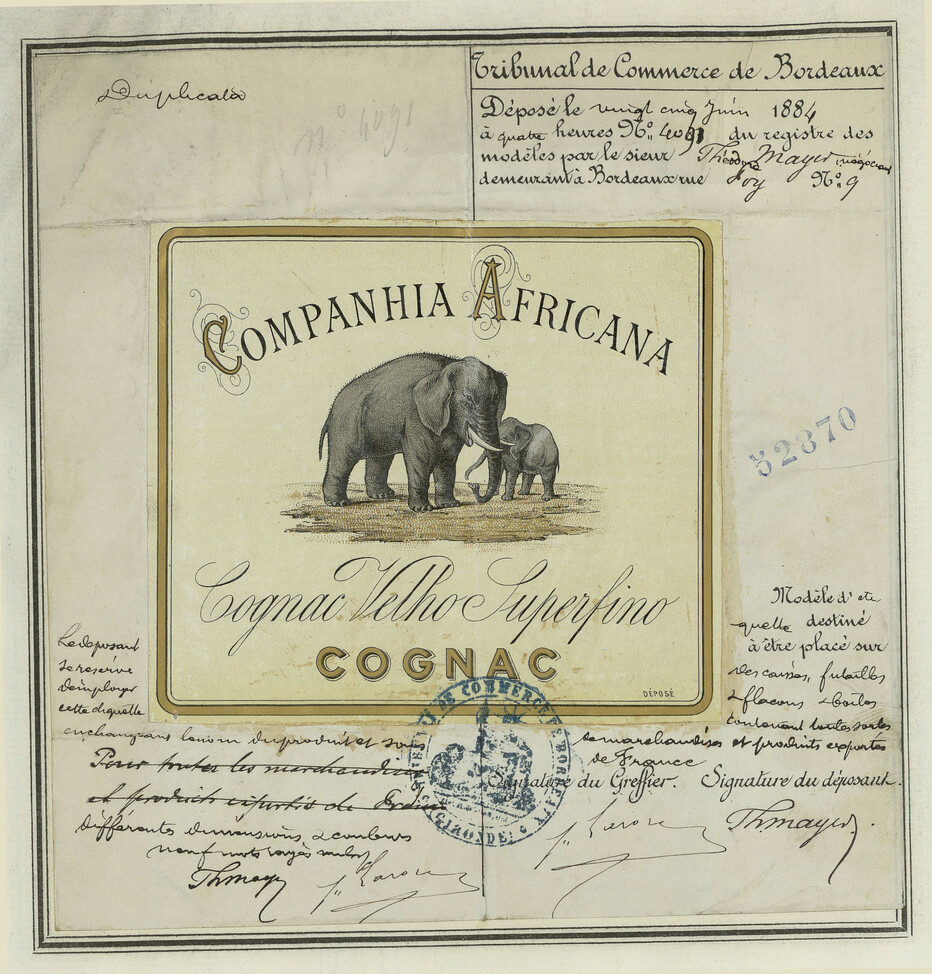 Duplicata
N° 4091
Tribunal de Commerce de Bordeaux
Déposé le vingt cinq Juin 1884
à quatre heures N° 4091 du registre des
modèles par le sieur Théodore Mayer, négociant
demeurant à Bordeaux rue Foy N° 9
COMPANHIA AFRICANA
Cognac Velho Superfino
COGNAC
DÉPOSÉ
52870
Modèle d'éti
quette destiné
à être placé sur
des caisses, futailles
& flacons & boites
contenant toutes sortes
de marchandises et produits exportés
de France
Le déposant
se réserve
d'employer
cette étiquette
en changeant le nom du produit et sous
Pour toutes les marchandises
et produits exportés de France
différentes dimensions & couleurs
neuf mots rayés nuls
TRIBUNAL DE COMMERCE DE BORDEAUX
(GIRONDE)
Signature du Greffier. Signature du déposant.
Thmayer
Thmayer